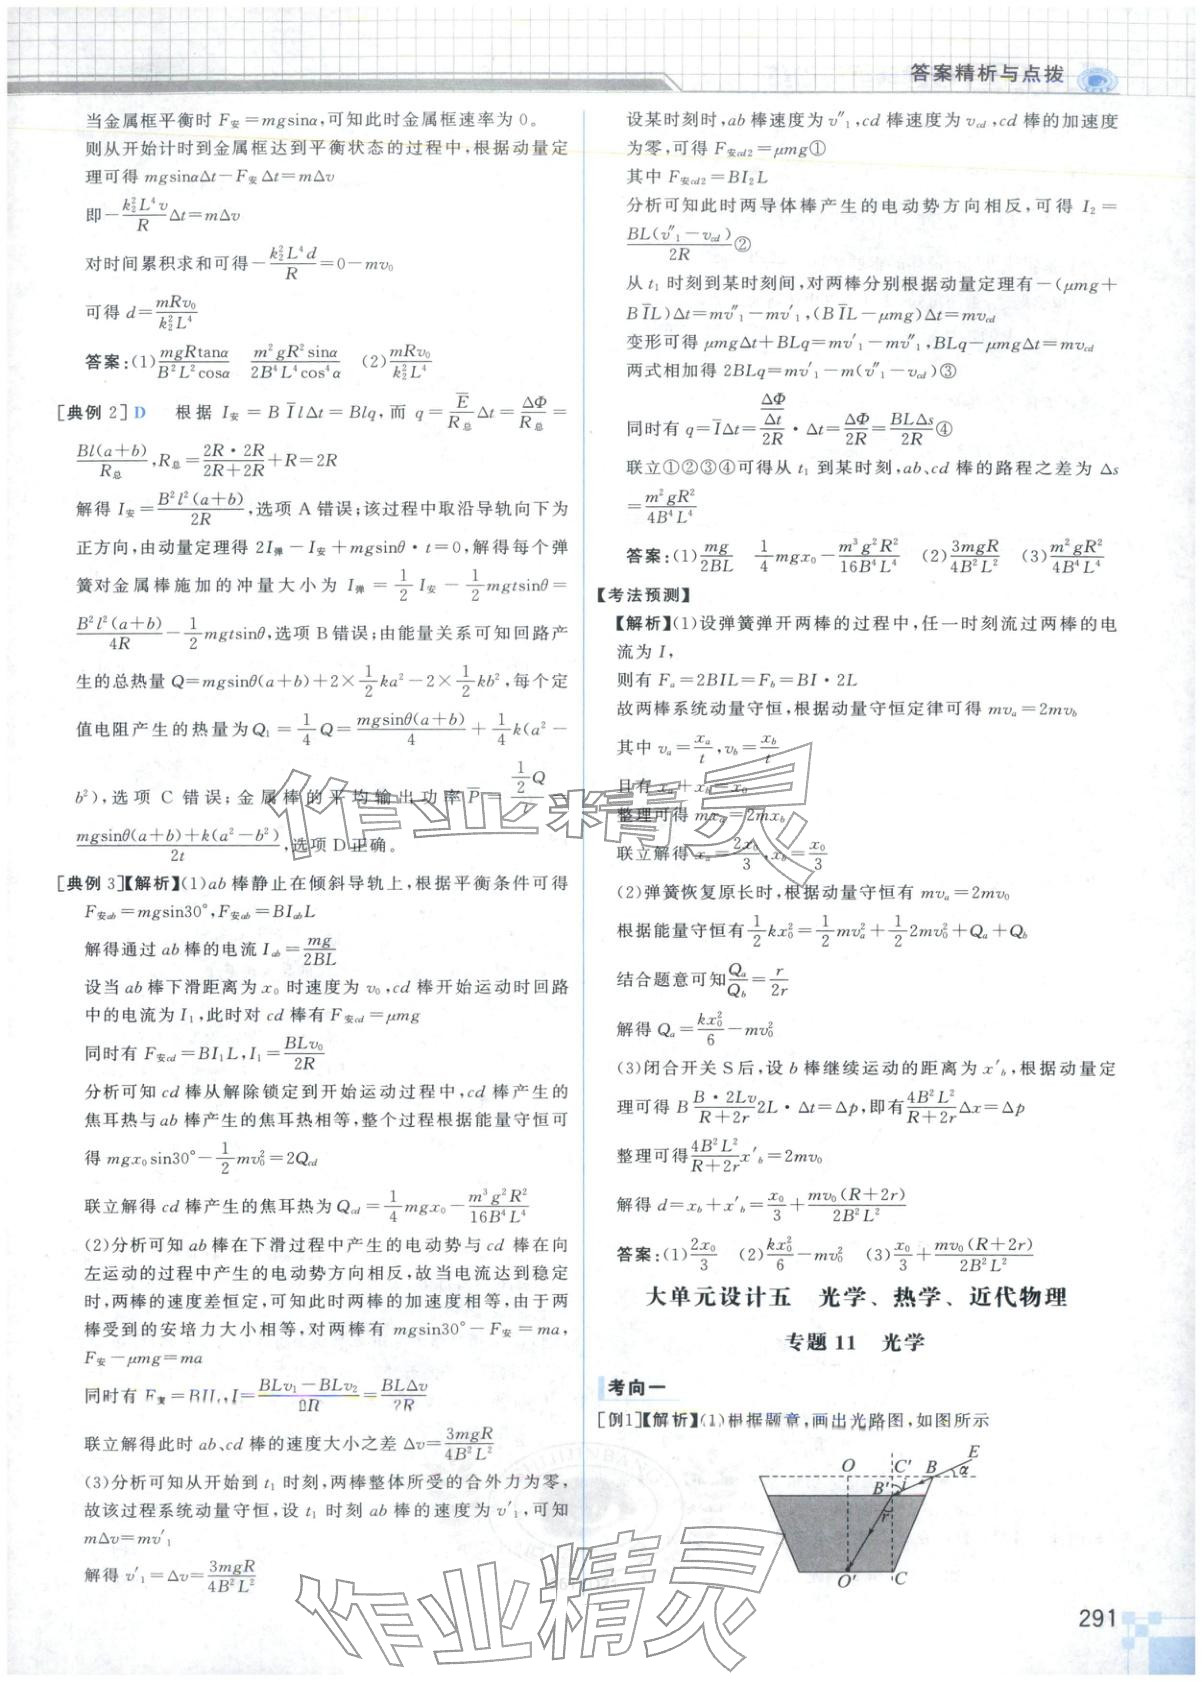 答案精析与点拨
当金属框平衡时 F安=mgsinα,可知此时金属框速率为 0。
则从开始计时到金属框达到平衡状态的过程中,根据动量定
理可得 mgsinαΔt-F安 Δt=mΔv
即-k₂²L⁴v/R Δt=mΔv
对时间累积求和可得-k₂²L⁴d/R=0-mv₀
可得 d=mRv₀/k₂²L⁴
答案:(1)mgRtanα/B²L²cosα m²gR²sinα/2B⁴L⁴cos⁴α (2)mRv₀/k₂²L⁴
[典例 2] D 根据 I安=B I̅lΔt=Blq,而 q=E̅/R总 Δt=ΔΦ/R总=
Bl(a+b)/R总,R总=2R·2R/(2R+2R)+R=2R
解得 I安=B²l²(a+b)/2R,选项 A 错误;该过程中取沿导轨向下为
正方向,由动量定理得 2I弹-I安+mgsinθ·t=0,解得每个弹
簧对金属棒施加的冲量大小为 I弹=1/2 I安-1/2 mgtsinθ=
B²l²(a+b)/4R-1/2 mgtsinθ,选项 B 错误;由能量关系可知回路产
生的总热量 Q=mgsinθ(a+b)+2×1/2 ka²-2×1/2 kb²,每个定
值电阻产生的热量为Q₁=1/4 Q=mgsinθ(a+b)/4+1/4 k(a²-
b²),选项 C 错误;金属棒的平均输出功率 P̅=1/2 Q/t=
mgsinθ(a+b)+k(a²-b²)/2t,选项 D 正确。
[典例 3]【解析】(1)ab 棒静止在倾斜导轨上,根据平衡条件可得
F安ab=mgsin30°,F安ab=BIabL
解得通过 ab 棒的电流 Iab=mg/2BL
设当 ab 棒下滑距离为 x₀ 时速度为 v₀,cd 棒开始运动时回路
中的电流为 I₁,此时对 cd 棒有 F安cd=μmg
同时有 F安cd=BI₁L,I₁=BLv₀/2R
分析可知 cd 棒从解除锁定到开始运动过程中,cd 棒产生的
焦耳热与 ab 棒产生的焦耳热相等,整个过程根据能量守恒可
得 mgx₀sin30°-1/2 mv₀²=2Qcd
联立解得 cd 棒产生的焦耳热为 Qcd=1/4 mgx₀-m³g²R²/16B⁴L⁴
(2)分析可知 ab 棒在下滑过程中产生的电动势与 cd 棒在向
左运动的过程中产生的电动势方向相反,故当电流达到稳定
时,两棒的速度差恒定,可知此时两棒的加速度相等,由于两
棒受到的安培力大小相等,对两棒有 mgsin30°-F安=ma,
F安-μmg=ma
同时有 F安=BIL,I=(BLv₁-BLv₂)/2R=BLΔv/2R
联立解得此时 ab、cd 棒的速度大小之差 Δv=3mgR/4B²L²
(3)分析可知从开始到 t₁ 时刻,两棒整体所受的合外力为零,
故该过程系统动量守恒,设 t₁ 时刻 ab 棒的速度为 v′₁,可知
mΔv=mv′₁
解得 v′₁=Δv=3mgR/4B²L²
设某时刻时,ab 棒速度为 v″₁,cd 棒速度为 vcd,cd 棒的加速度
为零,可得 F安cd2=μmg①
其中 F安cd2=BI₂L
分析可知此时两导体棒产生的电动势方向相反,可得 I₂=
BL(v″₁-vcd)/2R②
从 t₁ 时刻到某时刻间,对两棒分别根据动量定理有-(μmg+
B I̅L)Δt=mv″₁-mv′₁,(B I̅L-μmg)Δt=mvcd
变形可得 μmgΔt+BLq=mv′₁-mv″₁,BLq-μmgΔt=mvcd
两式相加得 2BLq=mv′₁-m(v″₁-vcd)③
同时有 q=I̅Δt=(ΔΦ/Δt)/2R·Δt=ΔΦ/2R=BLΔs/2R④
联立①②③④可得从 t₁ 到某时刻,ab、cd 棒的路程之差为 Δs
=m²gR²/4B⁴L⁴
答案:(1)mg/2BL 1/4 mgx₀-m³g²R²/16B⁴L⁴ (2)3mgR/4B²L² (3)m²gR²/4B⁴L⁴
【考法预测】
【解析】(1)设弹簧弹开两棒的过程中,任一时刻流过两棒的电
流为 I,
则有 Fa=2BIL=Fb=BI·2L
故两棒系统动量守恒,根据动量守恒定律可得 mva=2mvb
其中 va=xa/t,vb=xb/t
且有 xa+xb=x₀
整理可得 mxa=2mxb
联立解得 xa=2x₀/3,xb=x₀/3
(2)弹簧恢复原长时,根据动量守恒有 mva=2mv₀
根据能量守恒有1/2 kx₀²=1/2 mva²+1/2 2mv₀²+Qa+Qb
结合题意可知Qa/Qb=r/2r
解得 Qa=kx₀²/6-mv₀²
(3)闭合开关 S 后,设 b 棒继续运动的距离为 x′b,根据动量定
理可得 B B·2Lv/(R+2r) 2L·Δt=Δp,即有4B²L²/(R+2r) Δx=Δp
整理可得4B²L²/(R+2r) x′b=2mv₀
解得 d=xb+x′b=x₀/3+mv₀(R+2r)/2B²L²
答案:(1)2x₀/3 (2)kx₀²/6-mv₀² (3)x₀/3+mv₀(R+2r)/2B²L²
大单元设计五 光学、热学、近代物理
专题 11 光学
考向一
[例1]【解析】(1)根据题意,画出光路图,如图所示
O C′ B E
α
B′ i
r
O′ C
291
作业精灵
作业精灵